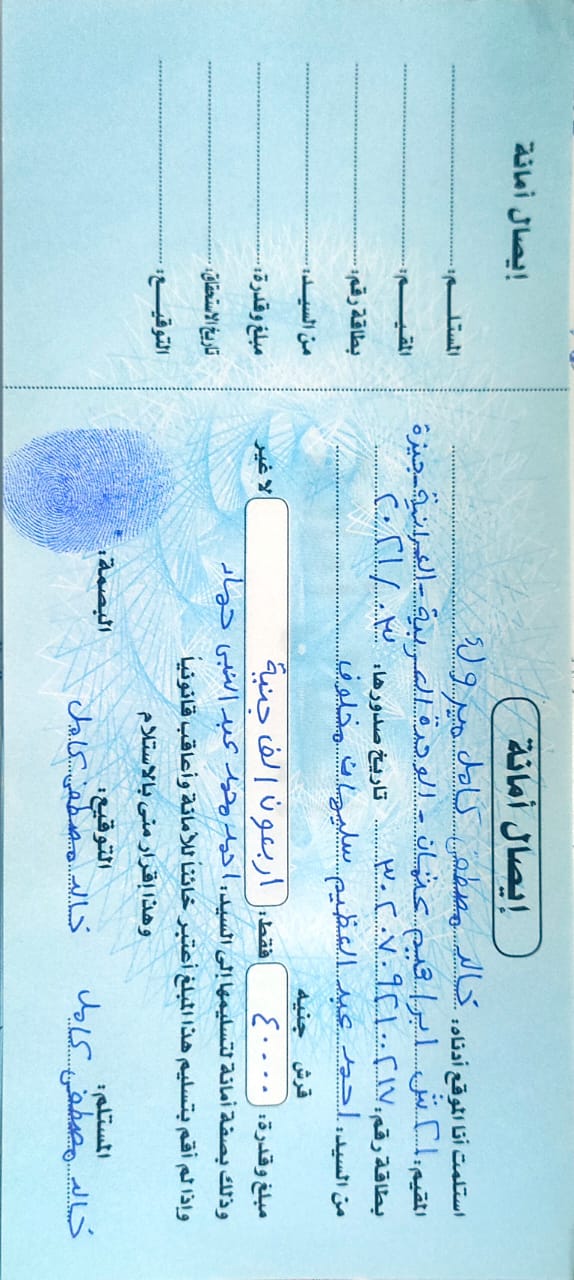 إيصال أمانة
استلمت أنا الموقع أدناه: خالد مصطفى كامل مبروك
المقيم: ٢١ ش ابراهيم عثمان - الوحدة العربية - العمرانية - جيزة
بطاقة رقم: ٣٠٢٠٧٠٩٢١٠٠٢١٧ تاريخ صدورها: ٢٠٢١/٠٣
من السيد: احمد عبد العظيم سليمان مخلوف
قرش جنيه
مبلغ وقدرة: ٤٠٠٠٠ فقط: اربعون الف جنية لا غير
وذلك بصفة أمانة لتسليمها إلى السيد: احمد محمد عبد النبى حماد
وإذا لم أقم بتسليم هذا المبلغ أعتبر خائناً للأمانة وأعاقب قانونياً
وهذا إقرار منى بالاستلام
المستلم: التوقيع: البصمة:
خالد مصطفى كامل خالد مصطفى كامل
إيصال أمانة
المستلم:
المقيم:
بطاقة رقم:
من السيد:
مبلغ وقدرة:
تاريخ الاستحقاق:
التوقيع: